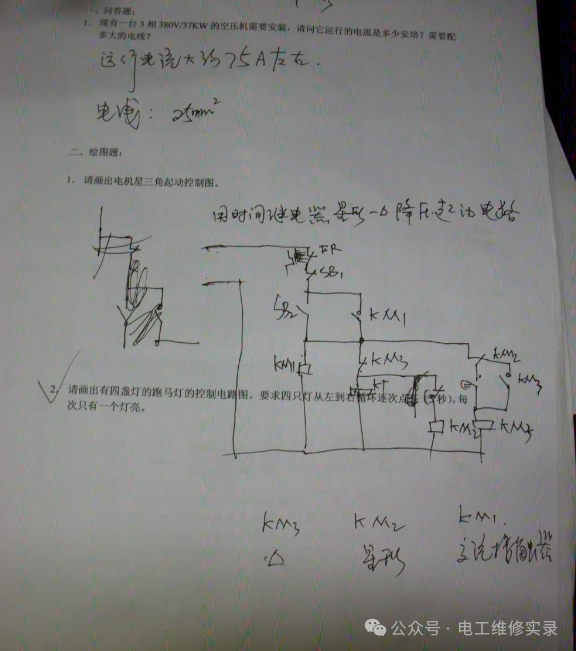 一、问答题：
1. 现有一台3相380V/37KW的空压机需要安装，请问它运行的电流是多少安培？需要配
多大的电线？
运行电流大约75A左右.
电线：25mm²
二、绘图题：
1. 请画出电机星三角起动控制图。
用时间继电器星形-△降压起动电路
FR
SB1
SB2
KM1
KM1
KM3
KT
KM2
KM3
KM2
KM3
2. 请画出有四盏灯的跑马灯的控制电路图。要求四只灯从左到右循环逐次点 秒），每
次只有一个灯亮。
KM3 KM2 KM1.
△ 星形 交流接触器
公众号·电工维修实录